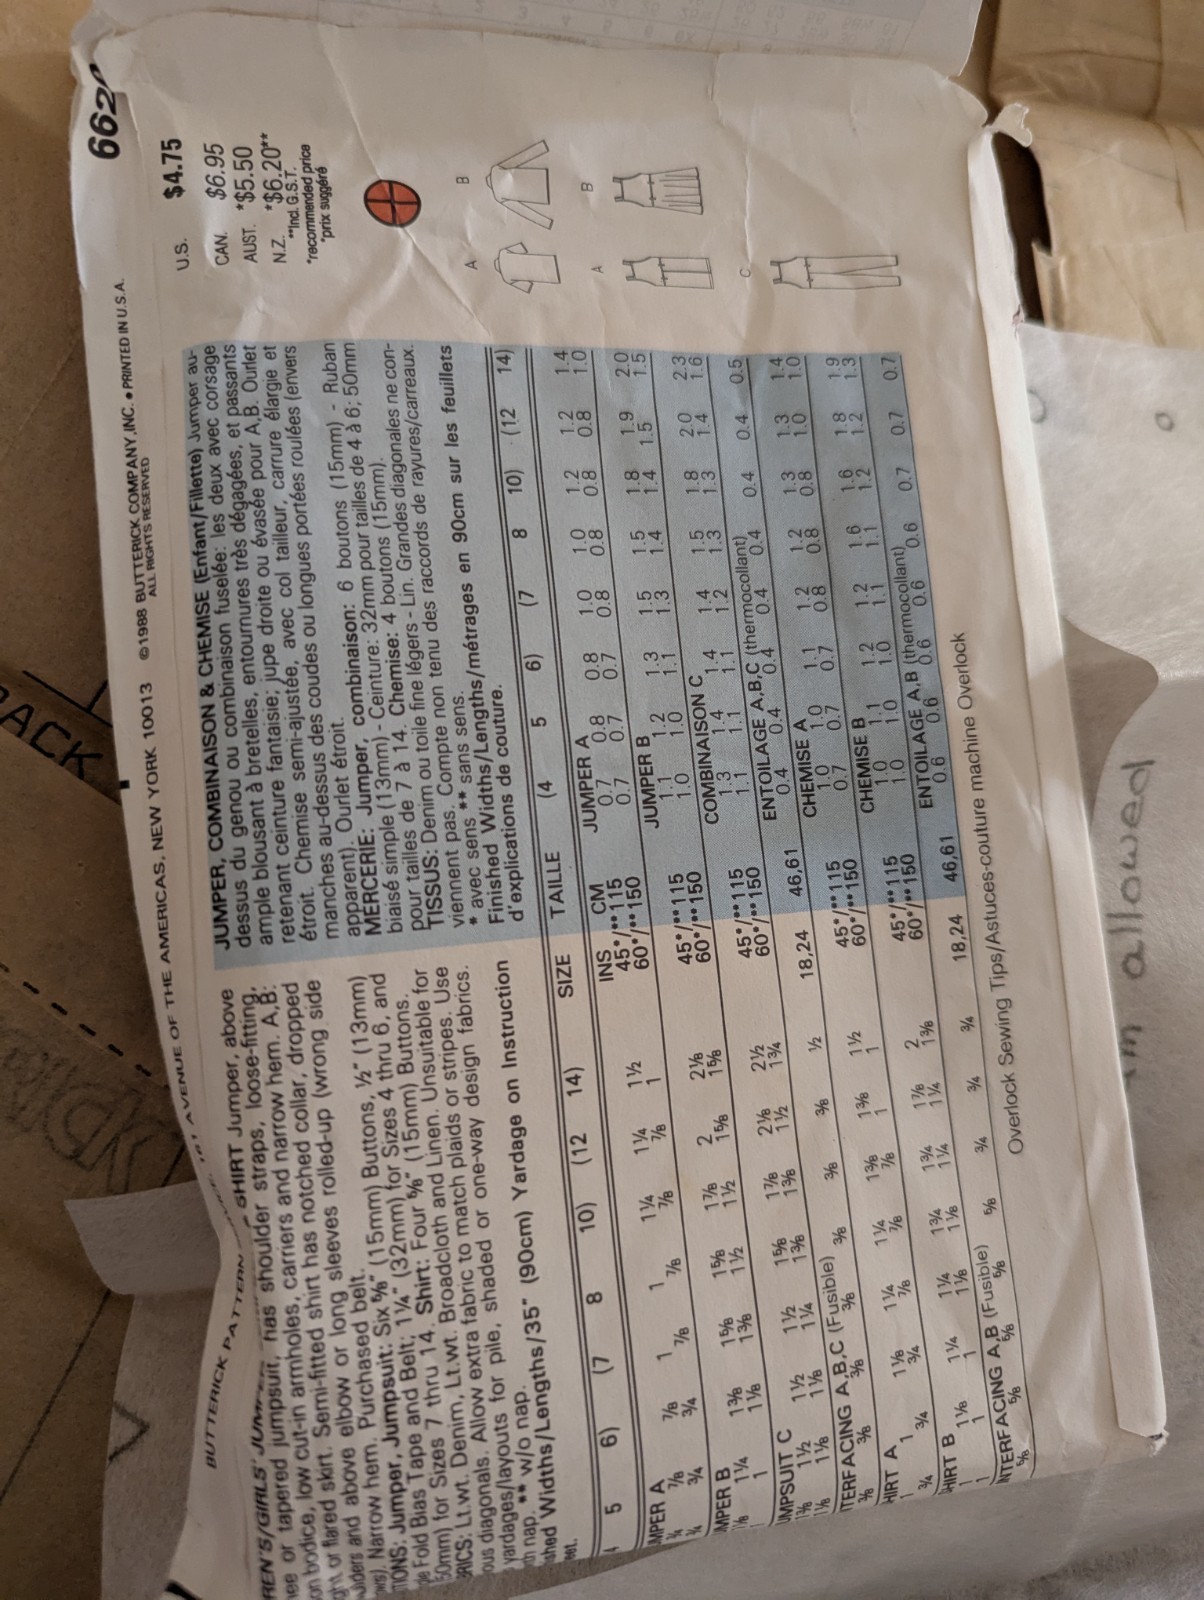 662
BUTTERICK PATTERN
AVENUE OF THE AMERICAS, NEW YORK 10013 ©1988 BUTTERICK COMPANY, INC. • PRINTED IN U.S.A.
ALL RIGHTS RESERVED
REN'S/GIRLS' JUMPER SHIRT Jumper, above
nee or tapered jumpsuit, has shoulder straps, loose-fitting,
on bodice, low cut-in armholes, carriers and narrow hem. A,B:
ght or flared skirt. Semi-fitted shirt has notched collar, dropped
ulders and above elbow or long sleeves rolled-up (wrong side
ws). Narrow hem. Purchased belt.
TIONS: Jumper, Jumpsuit: Six ⅝" (15mm) Buttons, ½" (13mm)
le Fold Bias Tape and Belt; 1¼" (32mm) for Sizes 4 thru 6, and
50mm) for Sizes 7 thru 14. Shirt: Four ⅝" (15mm) Buttons.
RICS: Lt.wt. Denim, Lt.wt. Broadcloth and Linen. Unsuitable for
ous diagonals. Allow extra fabric to match plaids or stripes. Use
yardages/layouts for pile, shaded or one-way design fabrics.
th nap. ** w/o nap.
shed Widths/Lengths/35" (90cm) Yardage on Instruction
eet.
4 5 6) (7 8 10) (12 14) SIZE
INS
MPER A
¾ ⅞ ⅞ 1 1 1¼ 1¼ 1½ 45*/**
¾ ¾ ¾ ⅞ ⅞ ⅞ ⅞ 1 60*/**
MPER B
⅛ 1¼ 1⅜ 1⅝ 1⅝ 1⅞ 2 2⅛ 45*/**
1 1⅛ 1⅜ 1½ 1½ 1⅝ 1⅝ 60*/**
UMPSUIT C
1⅜ 1½ 1½ 1½ 1⅝ 1⅞ 2⅛ 2½ 45*/**
1⅛ 1⅛ 1⅛ 1¼ 1⅜ 1⅜ 1½ 1¾ 60*/**
TERFACING A,B,C (Fusible)
⅜ ⅜ ⅜ ⅜ ⅜ ⅜ ⅜ ½ 18,24
HIRT A
1 1 1⅛ 1¼ 1¼ 1⅜ 1⅜ 1½ 45*/**
¾ ¾ ¾ ⅞ ⅞ ⅞ 1 1 60*/**
HIRT B
1 1⅛ 1¼ 1¼ 1¾ 1¾ 1⅞ 2 45*/**
1 1 1 1⅛ 1⅛ 1¼ 1¼ 1⅜ 60*/**
NTERFACING A,B (Fusible)
⅝ ⅝ ⅝ ⅝ ⅝ ¾ ¾ ¾ 18,24
JUMPER, COMBINAISON & CHEMISE (Enfant/Fillette) Jumper au-
dessus du genou ou combinaison fuselée: les deux avec corsage
ample blousant à bretelles, entournures très dégagées, et passants
retenant ceinture fantaisie; jupe droite ou évasée pour A,B. Ourlet
étroit. Chemise semi-ajustée, avec col tailleur, carrure élargie et
manches au-dessus des coudes ou longues portées roulées (envers
apparent). Ourlet étroit.
MERCERIE: Jumper, combinaison: 6 boutons (15mm) - Ruban
biaisé simple (13mm) - Ceinture: 32mm pour tailles de 4 à 6; 50mm
pour tailles de 7 à 14. Chemise: 4 boutons (15mm).
TISSUS: Denim ou toile fine légers - Lin. Grandes diagonales ne con-
viennent pas. Compte non tenu des raccords de rayures/carreaux.
* avec sens ** sans sens.
Finished Widths/Lengths/métrages en 90cm sur les feuillets
d'explications de couture.
TAILLE (4 5 6) (7 8 10) (12 14)
CM JUMPER A
115 0.7 0.8 0.8 1.0 1.0 1.2 1.2 1.4
150 0.7 0.7 0.7 0.8 0.8 0.8 0.8 1.0
JUMPER B
115 1.1 1.2 1.3 1.5 1.5 1.8 1.9 2.0
150 1.0 1.0 1.1 1.3 1.4 1.4 1.5 1.5
COMBINAISON C
115 1.3 1.4 1.4 1.4 1.5 1.8 2.0 2.3
150 1.1 1.1 1.1 1.2 1.3 1.3 1.4 1.6
ENTOILAGE A,B,C (thermocollant)
46,61 0.4 0.4 0.4 0.4 0.4 0.4 0.4 0.5
CHEMISE A
115 1.0 1.0 1.1 1.2 1.2 1.3 1.3 1.4
150 0.7 0.7 0.7 0.8 0.8 0.8 1.0 1.0
CHEMISE B
115 1.0 1.1 1.2 1.2 1.6 1.6 1.8 1.9
150 1.0 1.0 1.0 1.1 1.1 1.2 1.2 1.3
ENTOILAGE A,B (thermocollant)
46,61 0.6 0.6 0.6 0.6 0.6 0.7 0.7 0.7
Overlock Sewing Tips/Astuces-couture machine Overlock
U.S. $4.75
CAN. $6.95
AUST. *$5.50
N.Z. *$6.20**
**Incl. G.S.T.
*recommended price
*prix suggéré
A B
A B
C
ACK
allowed